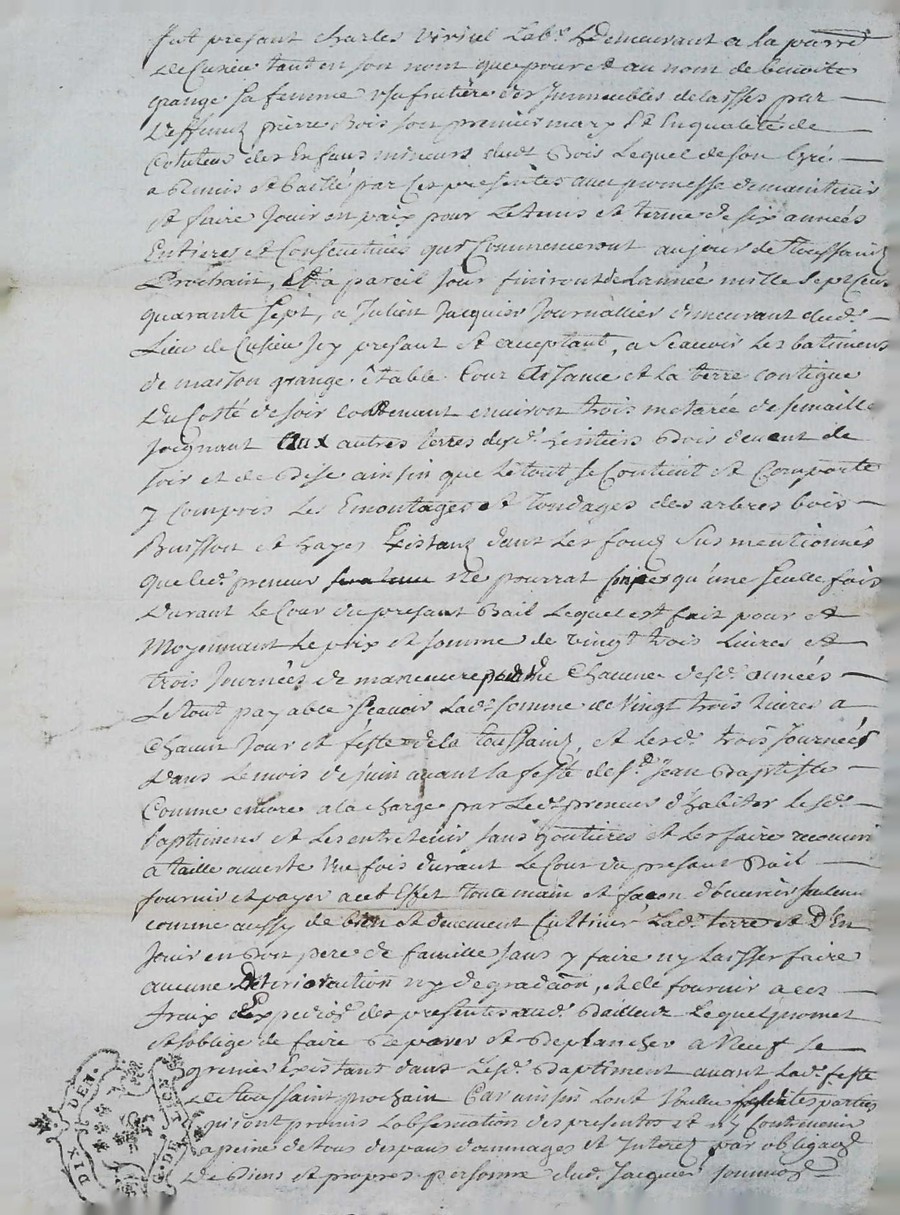 fut presant Charles Viriel Labr. Demeurant a la parrᵉ
de Cusieu tant en son nom que pour et au nom de benoite
grange sa femme usufrutière des Immeubles delaissés par
Deffunct pierre Bois son premier mary Et En qualité de
Cotuteur des Enfans mineurs dudt Bois Lequel de son Gré
a Remis et baillé par Ces presentes avec promesse de maintenir
et faire Jouir en paix pour Le tems et terme de six années
Entieres et Consecutives quy Commenceront au jour de toussaint
Prochain, Et a pareil Jour finiront de L'année mille sept Cens
quarante sept, a Julien Jacquier Journallier demeurant audt.
Lieu de Cusieu Icy presant et acceptant, a Scavoir Les batiments
de maison grange Etable Cour Aisance et la terre contigue
Du Costé de soir Contenant environ trois meterée de semaille
Joignant aux autres terres desd. heritiers Bois devent de
soir et de Bise ainsin que Le tout se Contient et Comporte
y Compris Les Emontages et tondages des arbres bois
Buisson et hayes Existans dans Les fonds Sus mentionnés
que led. preneur ne pourrat qu'une seulle fois
Durant Le Cour du presant Bail Lequel est fait pour et
Moyennant Le prix et somme de vingt trois Livres et
trois Journées de maneuvre Chacune desd. années
Le tout payable Scavoir Lade. somme de Vingt trois Livres a
Chacun Jour et feste de la toussaint, et Lesd. trois Journées
Dans Le mois de juin avant la feste de St. Jean Baptiste
Comme encore a la charge par Led. preneur d'habiter lesd.
baptimens et Les entretenir sans Goutieres et Les faire recouvrir
a taille ouverte Une fois durant Le Cour du presant Bail
fournir et payer a cet Effet toute main et façon d'ouvrier
comme aussy de bien et duement Cultiver Lade. terre et D'En
Jouir en Bon pere de famille sans y faire ny Laisser faire
aucune Deterioration ny degradaōn, et de fournir a ces
fraix Expedieōn des presentes aud. Bailleur Lequel promet
et s'oblige de faire Reparer et Replancher a Neuf Le
grenier Existant dans Led. Baptiment avant Lade. feste
de toussaint prochain Car ainsin L'ont Voulu parties
qui ont promis L'observation des presentes et n'y Contrevenir
a peine de tous despans dommages et Interets par obligaōn
de Biens et propres personne dud. Jacquier
DIX DEN.
G. DE LION